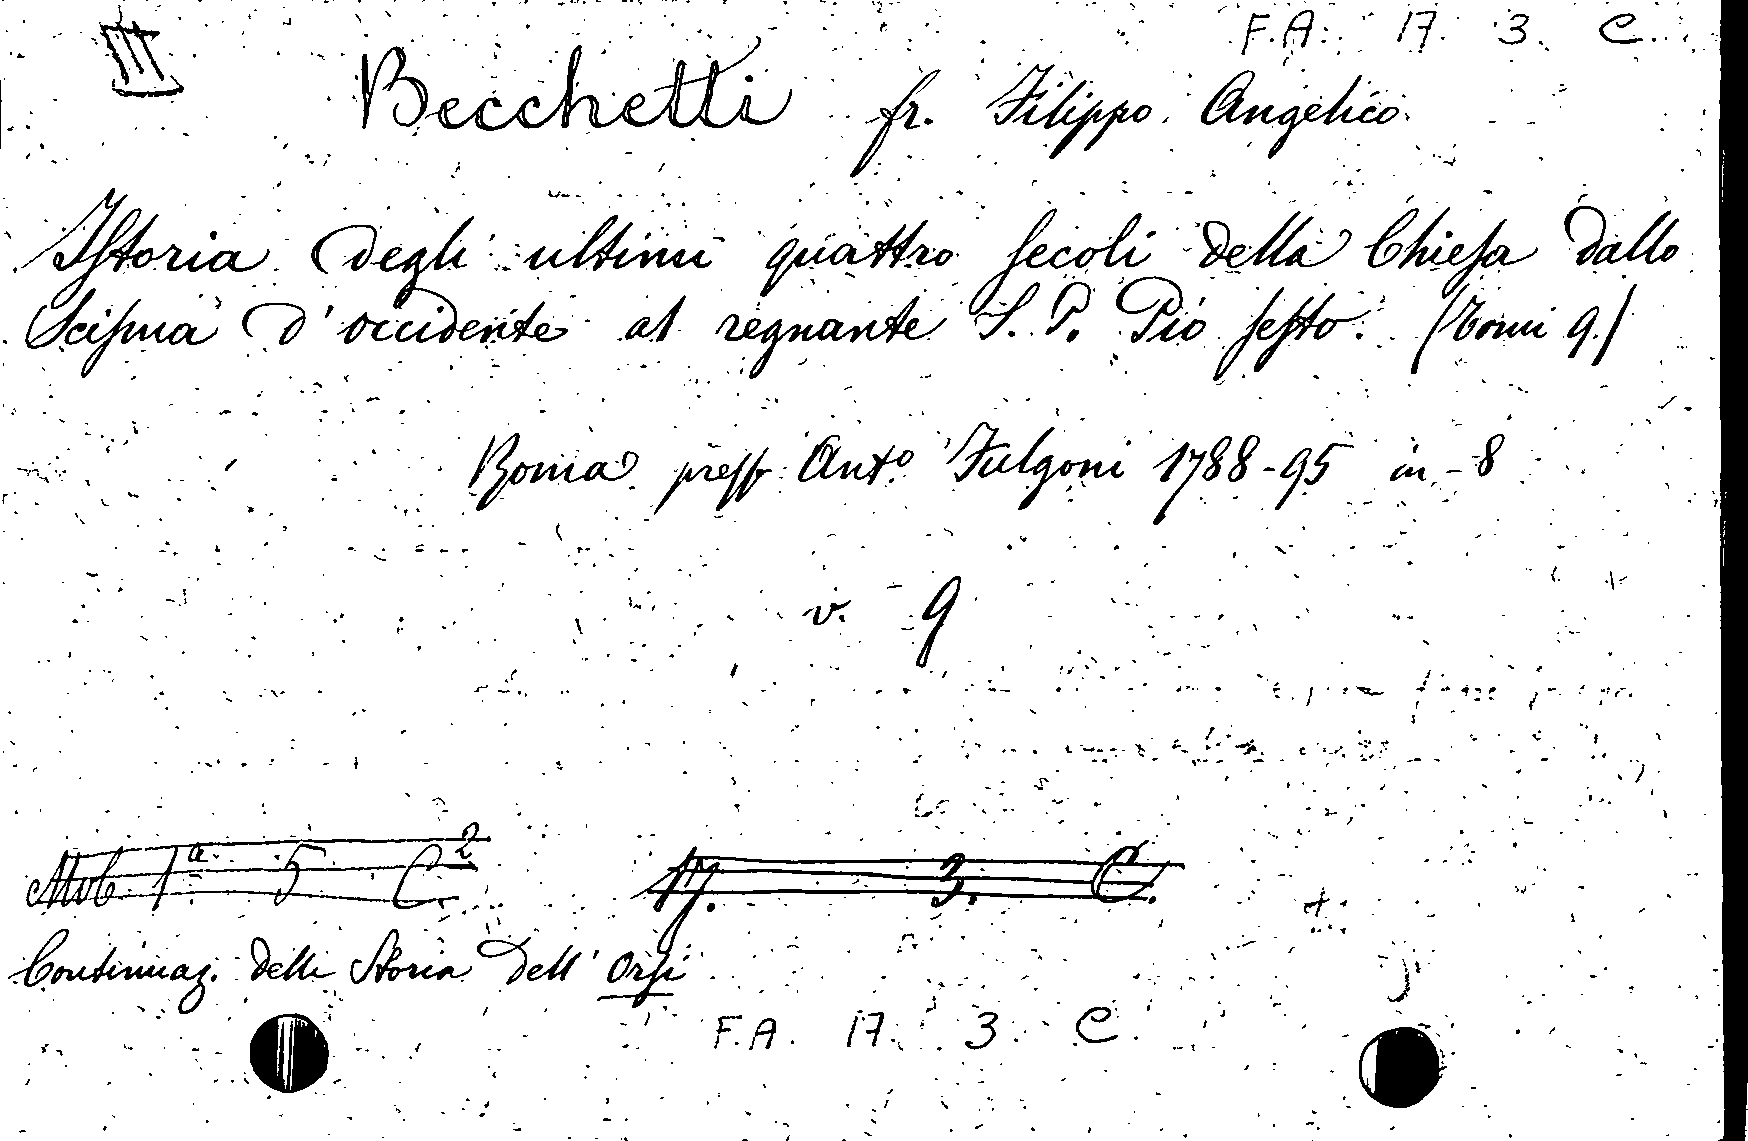 III F.A. 17. 3. C.
Becchetti fr. Filippo Angelico
Istoria degli ultimi quattro secoli della Chiesa dallo
Scisma d'occidente al regnante S. P. Pio sesto. (Tomi 9.)
Roma press. Ant.o Fulgoni 1788-95 in-8
v. 9
Mob 1a. 5 C.2 17. 3. C.
Continuaz. della Storia dell'Orsi
F.A. 17. 3. C.